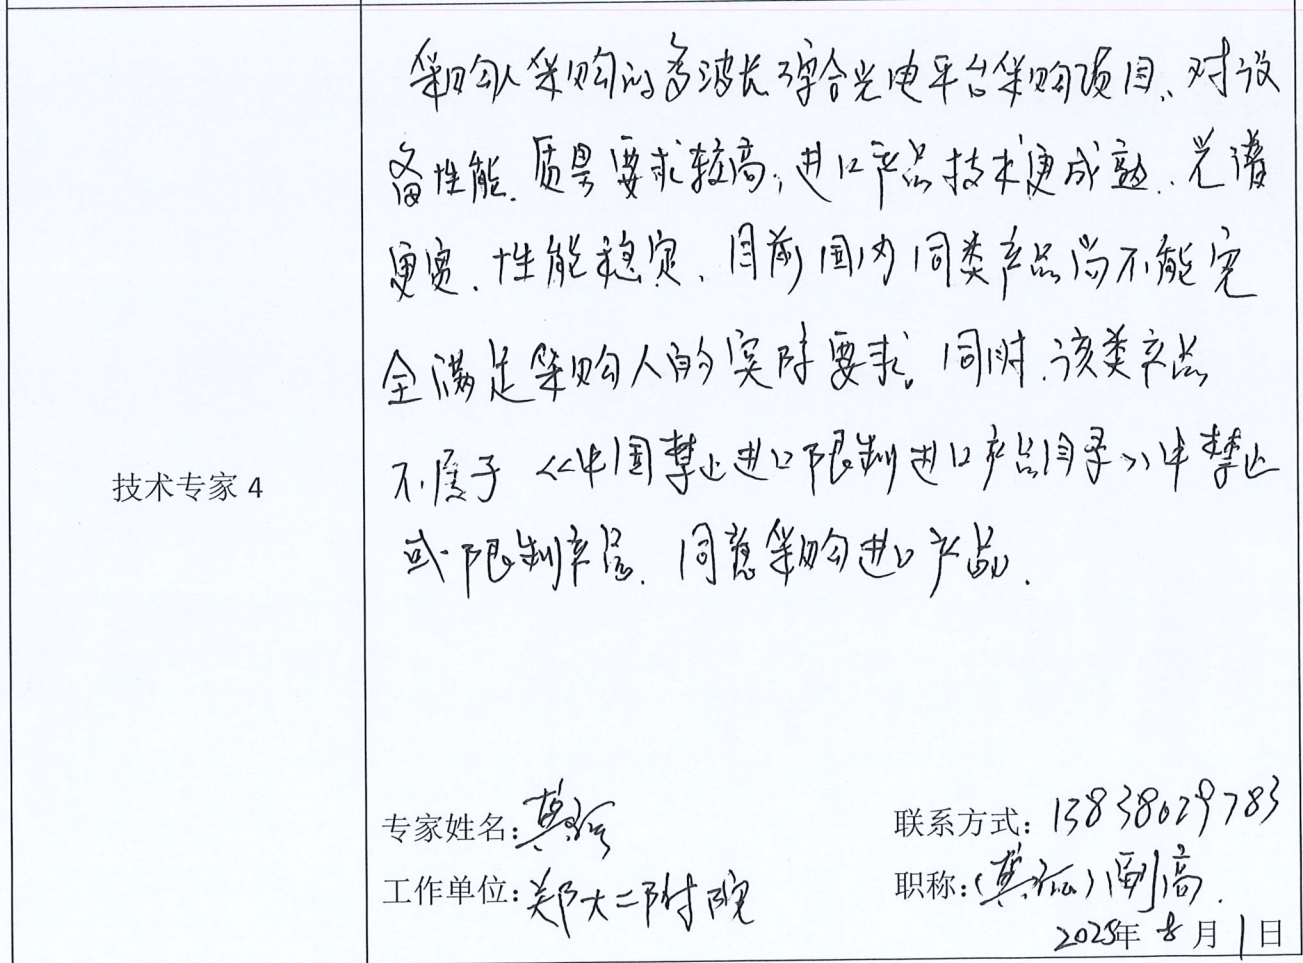 采购人采购的多波长综合光电平台采购项目、对设
备性能、质量要求较高，进口产品技术更成熟、光谱
更宽、性能稳定、目前国内同类产品尚不能完
全满足采购人的实际要求。同时、该类产品
不属于《中国禁止进口限制进口产品目录》中禁止
或限制产品、同意采购进口产品.
技术专家 4
专家姓名：
联系方式：13838029783
工作单位：郑大二附院
职称：副高
2025年 8 月 1 日